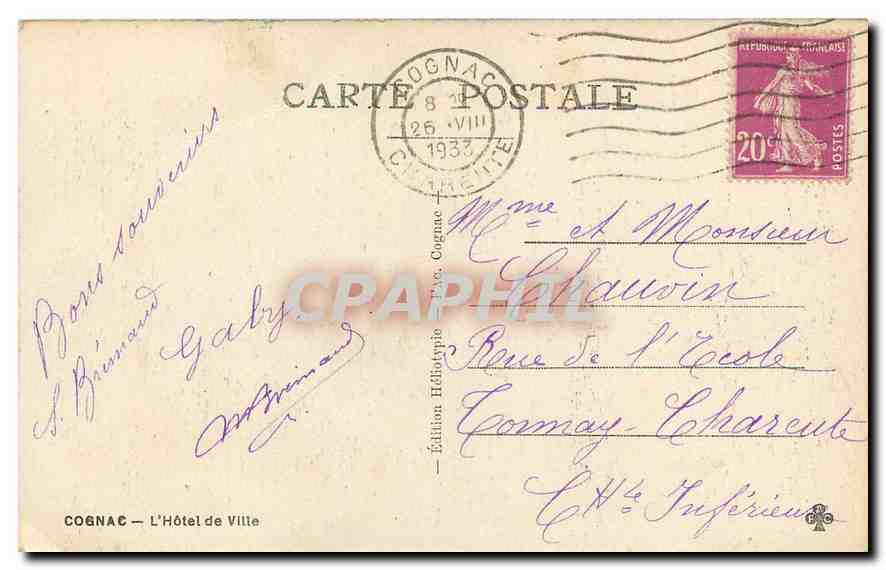 CARTE POSTALE
COGNAC
8 
26 · VIII
1933
CHARENTE
REPUBLIQUE FRANÇAISE
20c
POSTES
Bons souvenirs
S. Brémaud
Gaby
Brémaud
Édition Héliotypie P. F. C. Cognac
CPAPHIL
Mme et Monsieur
Chauvin
Rue de l'Ecole
Tonnay-Charente
CHte Inférieure
COGNAC — L'Hôtel de Ville